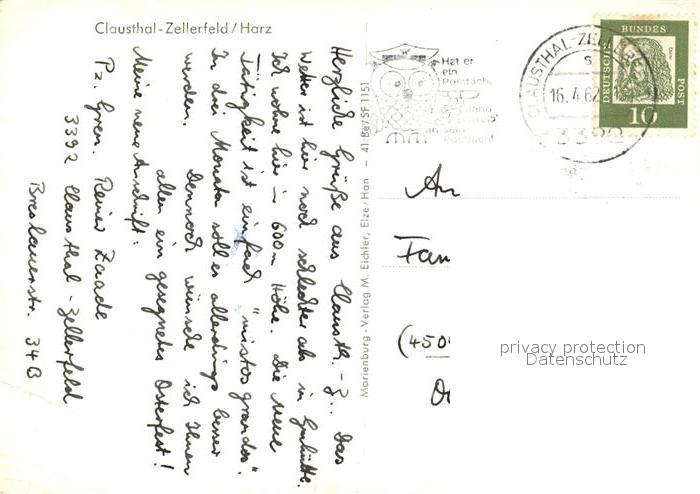 Clausthal-Zellerfeld/Harz
Herzliche Grüße aus Clausth.-Z.. Das
Wetter ist hier noch schlechter als in
Ich wohne hier in 600 m Höhe. Die neue
Tätigkeit ist einfach "mistos grandos".
In drei Monaten soll es allerdings besser
werden. Dennoch wünsche ich Ihnen
allen ein gesegnetes Osterfest!
Meine neue Anschrift:
Pz. Gren. Reiner Zaade
3392 Clausthal-Zellerfeld
Breslauerstr. 34B
Marienburg-Verlag M. Eichler, Elze/Han – 41 Be/SF 1151
Hat er
ein
Postfach,
an sein
Postfach!
CLAUSTHAL-ZELLERFE
16.4.62
3392
DEUTSCHE
BUNDES
POST
10
An
Fam
(450
privacy protection
Datenschutz